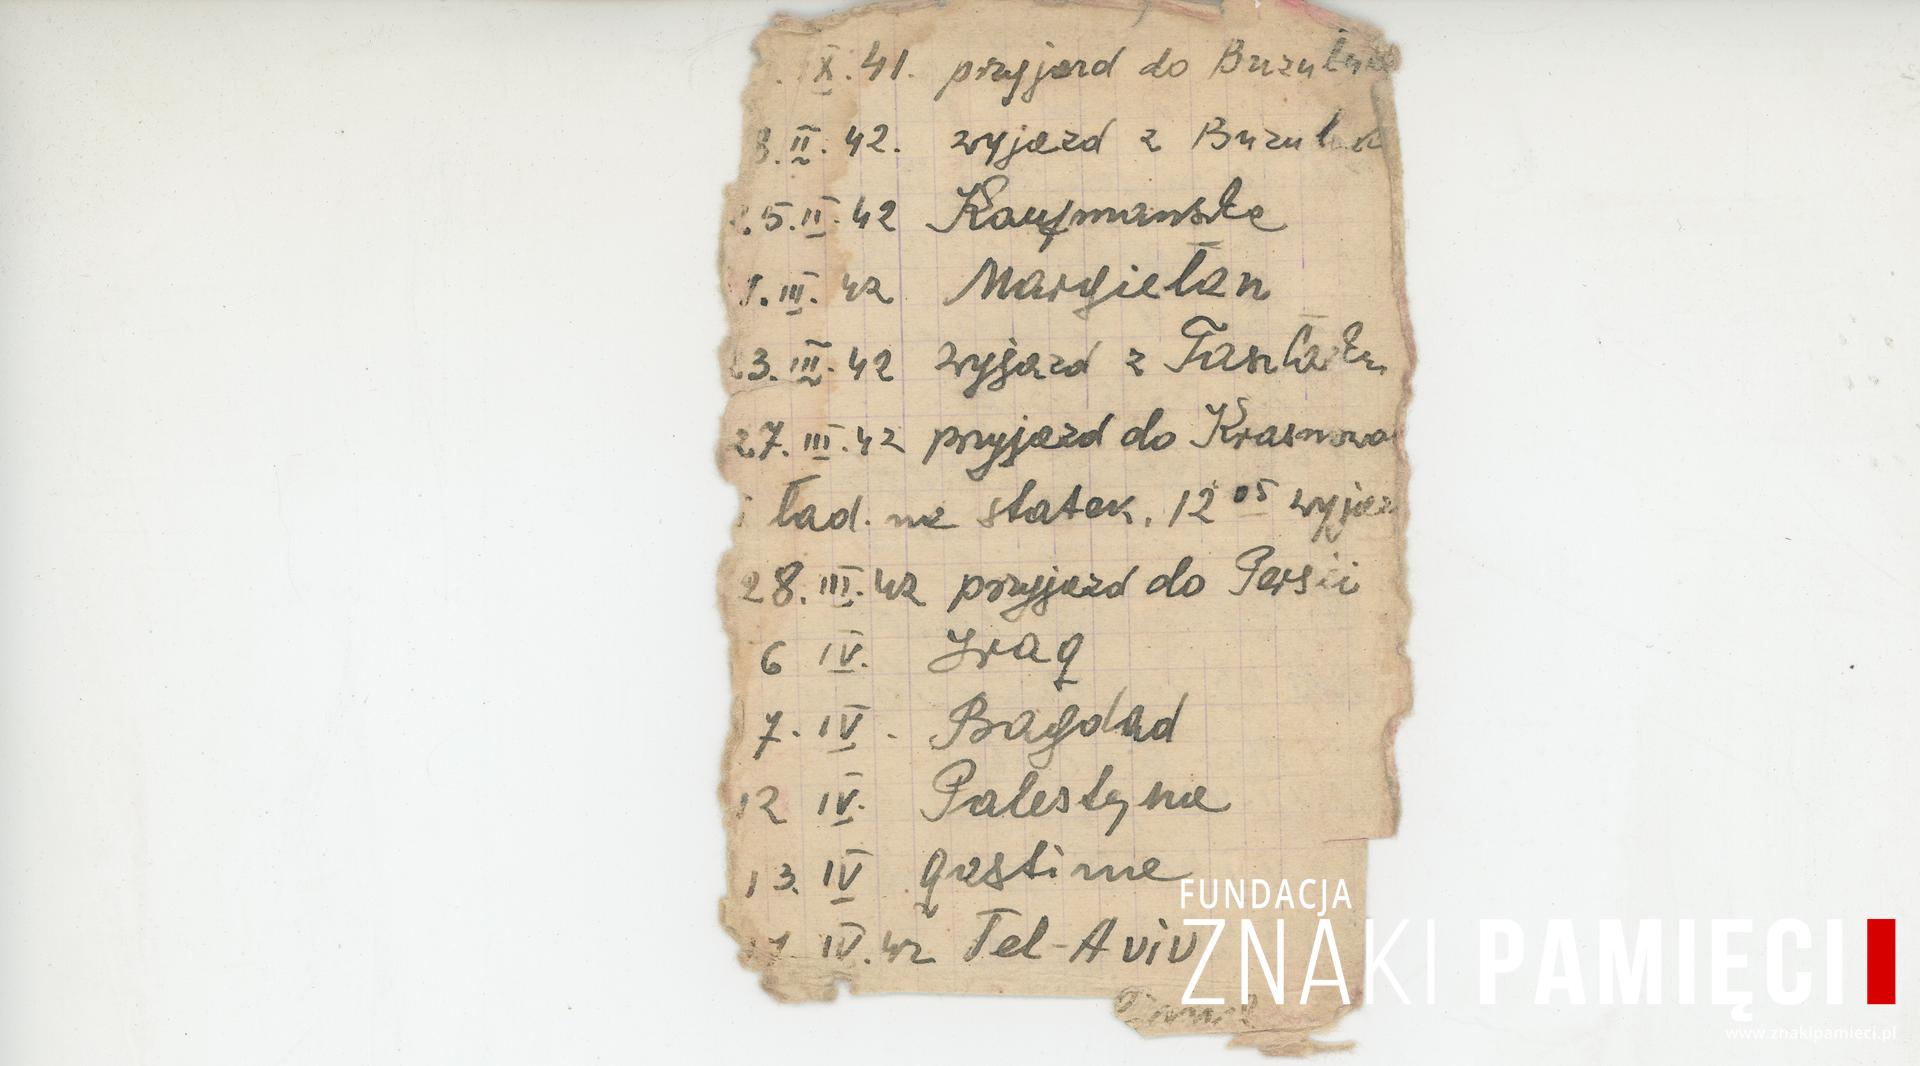 . IX. 41. przyjazd do Buzułuk
8. II. 42. wyjazd z Buzułuk
25. II. 42 Kaufmańska
1. III. 42 Margiełan
23. III. 42 wyjazd z Taszken
27. III. 42 przyjazd do Krasnowo
i ład. na statek. 12 05 wyjaz
28. III. 42 przyjazd do Persii
6 IV. Iraq
7. IV. Bagdad
12 IV. Palestyna
13. IV qastina
IV. 42 Tel-Aviv
FUNDACJA
ZNAKI PAMIĘCI
www.znakipamieci.pl